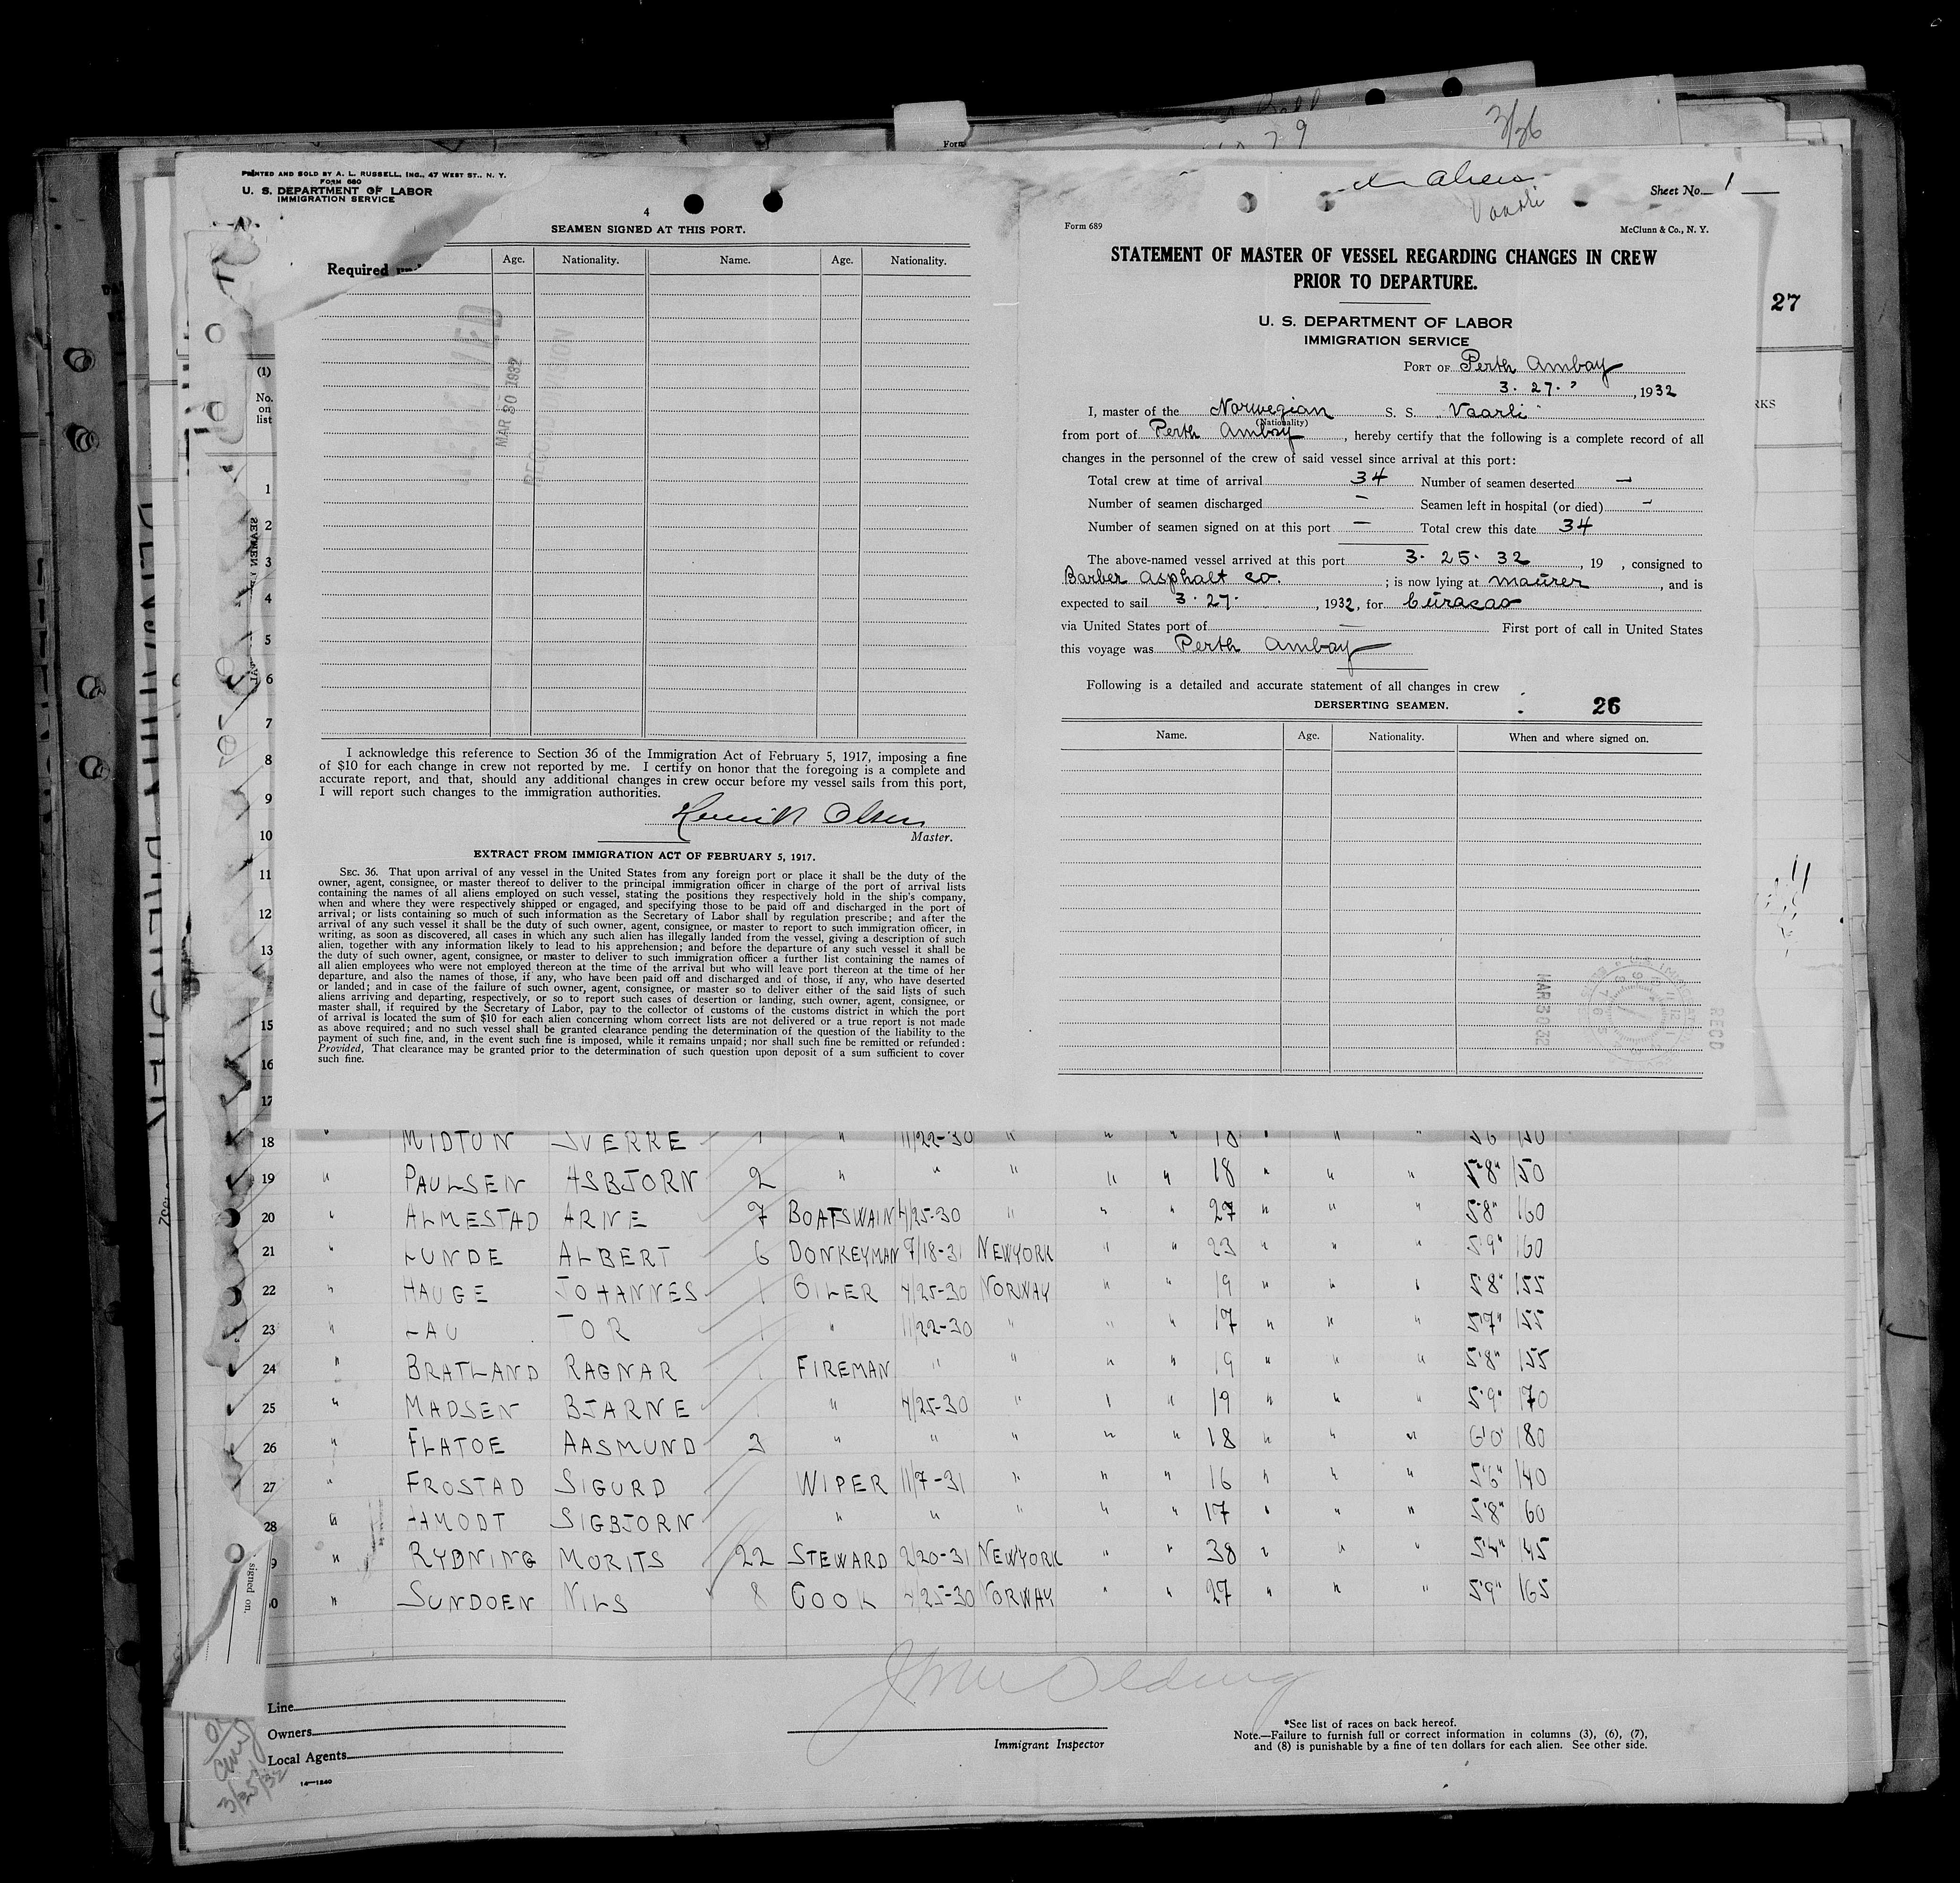 3/26
27
PRINTED AND SOLD BY A. L. RUSSELL, INC., 47 WEST ST., N. Y.
FORM 680
U. S. DEPARTMENT OF LABOR
IMMIGRATION SERVICE
Required
4
SEAMEN SIGNED AT THIS PORT.
Age. Nationality. Name. Age. Nationality.
RECEIVED
MAR 30 1932
RECORD DIVISION
I acknowledge this reference to Section 36 of the Immigration Act of February 5, 1917, imposing a fine
of $10 for each change in crew not reported by me. I certify on honor that the foregoing is a complete and
accurate report, and that, should any additional changes in crew occur before my vessel sails from this port,
I will report such changes to the immigration authorities.
Henrik Olsen
Master.
EXTRACT FROM IMMIGRATION ACT OF FEBRUARY 5, 1917.
SEC. 36. That upon arrival of any vessel in the United States from any foreign port or place it shall be the duty of the
owner, agent, consignee, or master thereof to deliver to the principal immigration officer in charge of the port of arrival lists
containing the names of all aliens employed on such vessel, stating the positions they respectively hold in the ship's company,
when and where they were respectively shipped or engaged, and specifying those to be paid off and discharged in the port of
arrival; or lists containing so much of such information as the Secretary of Labor shall by regulation prescribe; and after the
arrival of any such vessel it shall be the duty of such owner, agent, consignee, or master to report to such immigration officer, in
writing, as soon as discovered, all cases in which any such alien has illegally landed from the vessel, giving a description of such
alien, together with any information likely to lead to his apprehension; and before the departure of any such vessel it shall be
the duty of such owner, agent, consignee, or master to deliver to such immigration officer a further list containing the names of
all alien employees who were not employed thereon at the time of the arrival but who will leave port thereon at the time of her
departure, and also the names of those, if any, who have been paid off and discharged and of those, if any, who have deserted
or landed; and in case of the failure of such owner, agent, consignee, or master so to deliver either of the said lists of such
aliens arriving and departing, respectively, or so to report such cases of desertion or landing, such owner, agent, consignee, or
master shall, if required by the Secretary of Labor, pay to the collector of customs of the customs district in which the port
of arrival is located the sum of $10 for each alien concerning whom correct lists are not delivered or a true report is not made
as above required; and no such vessel shall be granted clearance pending the determination of the question of the liability to the
payment of such fine, and, in the event such fine is imposed, while it remains unpaid; nor shall such fine be remitted or refunded:
Provided, That clearance may be granted prior to the determination of such question upon deposit of a sum sufficient to cover
such fine.
Vaarli
Sheet No. 1
Form 689
McClunn & Co., N. Y.
STATEMENT OF MASTER OF VESSEL REGARDING CHANGES IN CREW
PRIOR TO DEPARTURE.
U. S. DEPARTMENT OF LABOR
IMMIGRATION SERVICE
PORT OF Perth Amboy
3. 27. , 1932
I, master of the Norwegian S. S. Vaarli
(Nationality)
from port of Perth Amboy, hereby certify that the following is a complete record of all
changes in the personnel of the crew of said vessel since arrival at this port:
Total crew at time of arrival 34 Number of seamen deserted —
Number of seamen discharged — Seamen left in hospital (or died) -
Number of seamen signed on at this port — Total crew this date 34
The above-named vessel arrived at this port 3. 25. 32, 19 , consigned to
Barber Asphalt Co. ; is now lying at Maurer, and is
expected to sail 3. 27. , 1932, for Curacao
via United States port of — First port of call in United States
this voyage was Perth Amboy
Following is a detailed and accurate statement of all changes in crew
DERSERTING SEAMEN.
26
Name. Age. Nationality. When and where signed on.
MAR 30 32
REC'D
(1)
No. on list
1
2
3
4
5
6
7
8
9
10
11
12
13
15
16
17
18 " MIDTUN SVERRE 1 " 11/22-30 " " " 18 " " " 5'6 150
19 " PAULSEN ASBJORN 2 " " " " " 18 " " " 5'8" 150
20 " ALMESTAD ARNE 7 BOATSWAIN 4/25-30 " " " 27 " " " 5'8" 160
21 " LUNDE ALBERT 6 DONKEYMAN 9/18-31 NEWYORK " " 23 " " " 5'9" 160
22 " HAUGE JOHANNES 1 OILER 4/25-30 NORWAY " " 19 " " " 5'8" 155
23 " LAU TOR 1 " 11/22-30 " " " 17 " " " 5'7" 155
24 " BRATLAND RAGNAR 1 FIREMAN " " " " 19 " " " 5'8" 155
25 " MADSEN BJARNE 1 " 4/25-30 " " " 19 " " " 5'9" 170
26 " FLATOE AASMUND 3 " " " " " 18 " " " 6'0" 180
27 " FROSTAD SIGURD WIPER 11/7-31 " " " 16 " " " 5'6" 140
28 " AAMODT SIGBJORN " " " " " 17 " " " 5'8" 60
9 " RYDNING MORITS 22 STEWARD 2/20-31 NEWYORK " " 38 " " " 5'4" 145
0 " SUNDOEN NILS 8 COOK 4/25-30 NORWAY " " 27 " " " 5'9" 165
signed on.
Line
Owners
Local Agents
14—1240
3/25/32
Immigrant Inspector
*See list of races on back hereof.
Note.—Failure to furnish full or correct information in columns (3), (6), (7),
and (8) is punishable by a fine of ten dollars for each alien. See other side.